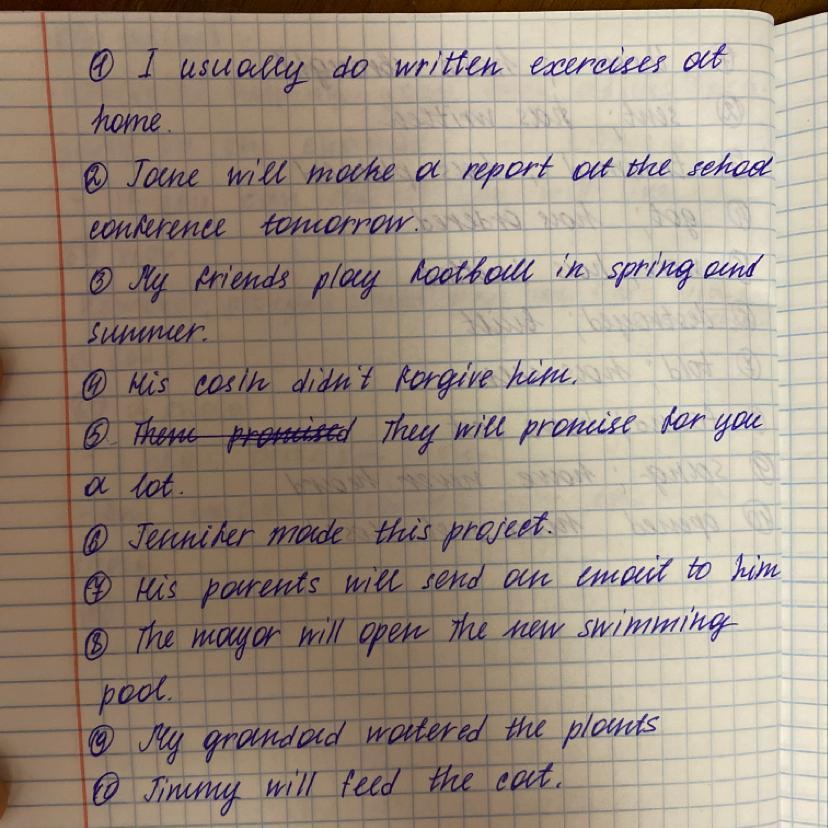 ① I usually do written exercises at
home.
② Jane will make a report at the school
conference tomorrow.
③ My friends play football in spring and
summer.
④ His cosin didn't forgive him.
⑤ They will promise for you
a lot.
⑥ Jennifer made this project.
⑦ His parents will send an email to him
⑧ The mayor will open the new swimming
pool.
⑨ My grandad watered the plants
⑩ Jimmy will feed the cat.